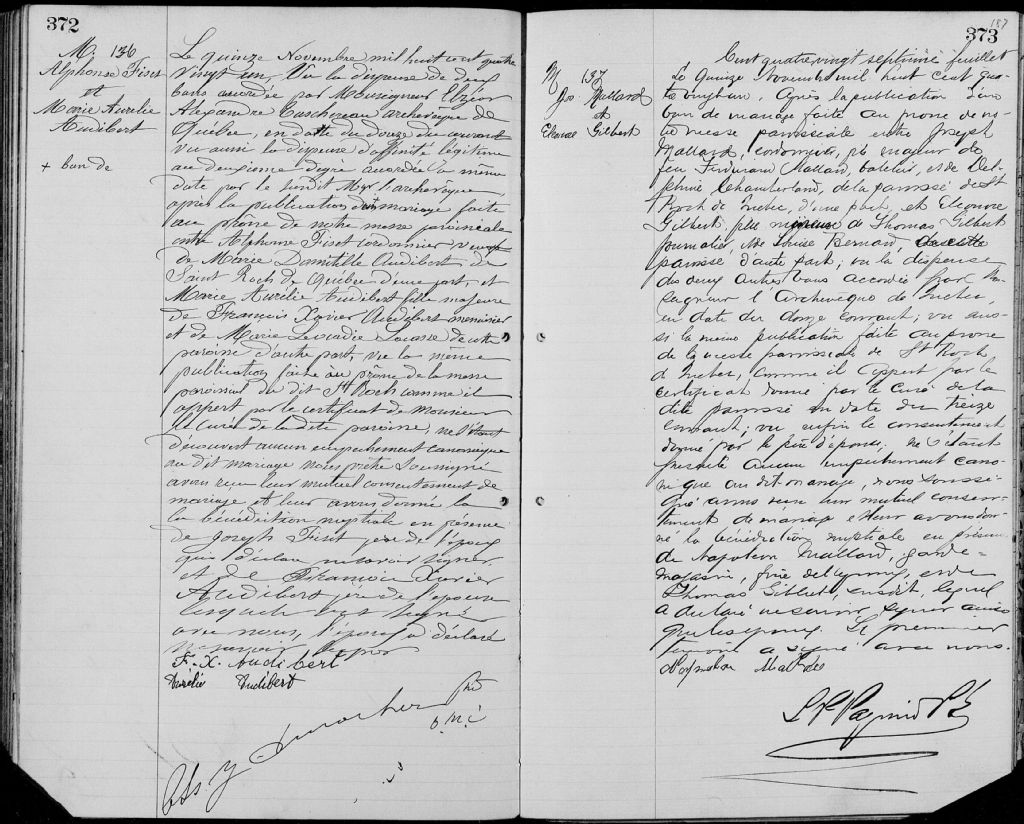 372
M. 136
Alphonse Fiset
et
Marie Aurélie
Audibert
+ ban de
Le quinze Novembre mil huit cent quatre
vingt un, Vu la dispense de deux
bans accordée par Monseigneur Elzéar
Alexandre Taschereau archevêque de
Québec, en date du douze du courant
vu aussi la dispense d'affinité légitime
au deuxième degré accordée la même
date par le susdit Mgr l'archevêque,
après la publication de mariage faite
au prône de notre messe paroissiale
entre Alphonse Fiset cordonnier veuf
de Marie Domitille Audibert de
Saint Roch de Québec d'une part, et
Marie Aurélie Audibert fille majeure
de François Xavier Audibert menuisier
et de Marie Leocadie de cette
paroisse d'autre part, vu la même
publication faite au prône de la messe
paroissial du dit St Roch comme il
appert par le certificat de Monsieur
le Curé de la dite paroisse, ne s'étant
découvert aucun empêchement canonique
au dit mariage nous prêtre soussigné
avons reçu leur mutuel consentement de
mariage et leur avons donné la
la bénédiction nuptiale en présence
de Joseph Fiset père de l'époux
qui déclare ne savoir signer
et de François Xavier
Audibert père de l'épouse
lesquels ont signé
avec nous, l'époux a déclaré
ne savoir signer
F. X. Audibert
Aurélie Audibert
Ptre
o.m.i
187
373
M 137
Jos. Mallard
et
Eleonore Gilbert
Cent quatre vingt septième feuillet
Le quinze novembre mil huit cent qua-
tre vingt un. Après la publication d'un
ban de mariage faite au prone de no-
tre messe paroissiale entre Joseph
Mallard, cordonnier, fils majeur de
feu Ferdinand Mallard, batelier, et de Del-
phine Chamberland, de la paroisse de St
Roch de Québec, d'une part, et Eleonore
Gilbert, fille mineure de Thomas Gilbert
journalier, et de Louise Bernard, de cette
paroisse d'autre part; vu la dispense
des deux autres bans accordée par Mon-
seigneur l'Archevêque de Québec,
en date du douze courant; vu aus-
si la même publication faite au prone
de la messe paroissiale de St Roch
de Québec, comme il appert par le
certificat donné par le Curé de la
dite paroisse en date du treize
courant; vu enfin le consentement
donné par le père d'épouse; ne s'étant
presenté aucun empêchement cano-
nique au dit mariage, nous soussi-
gné avons reçu leur mutuel consen-
tement de mariage et leur avons don-
né la bénédiction nuptiale en présence
de Napoleon Mallard, garde-
magasin, frère de l'époux, et de
Thomas Gilbert, susdit, lequel
a déclaré ne savoir signer ainsi
que les époux. Le premier
témoin a signé avec nous.
Napoleon Mallard